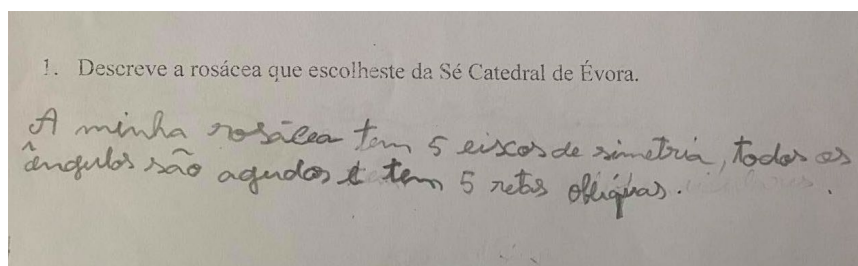 1. Descreve a rosácea que escolheste da Sé Catedral de Évora.
A minha rosácea tem 5 eiscos de simetria, todos os
ângulos são agudos e tem 5 retas obliquas.